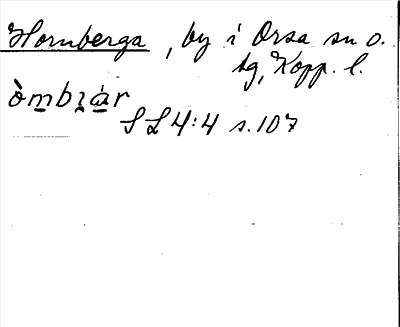 Hornberga, by i Orsa sn o.
tg, Kopp. l.
òmbɿár
SL 4:4 s. 107